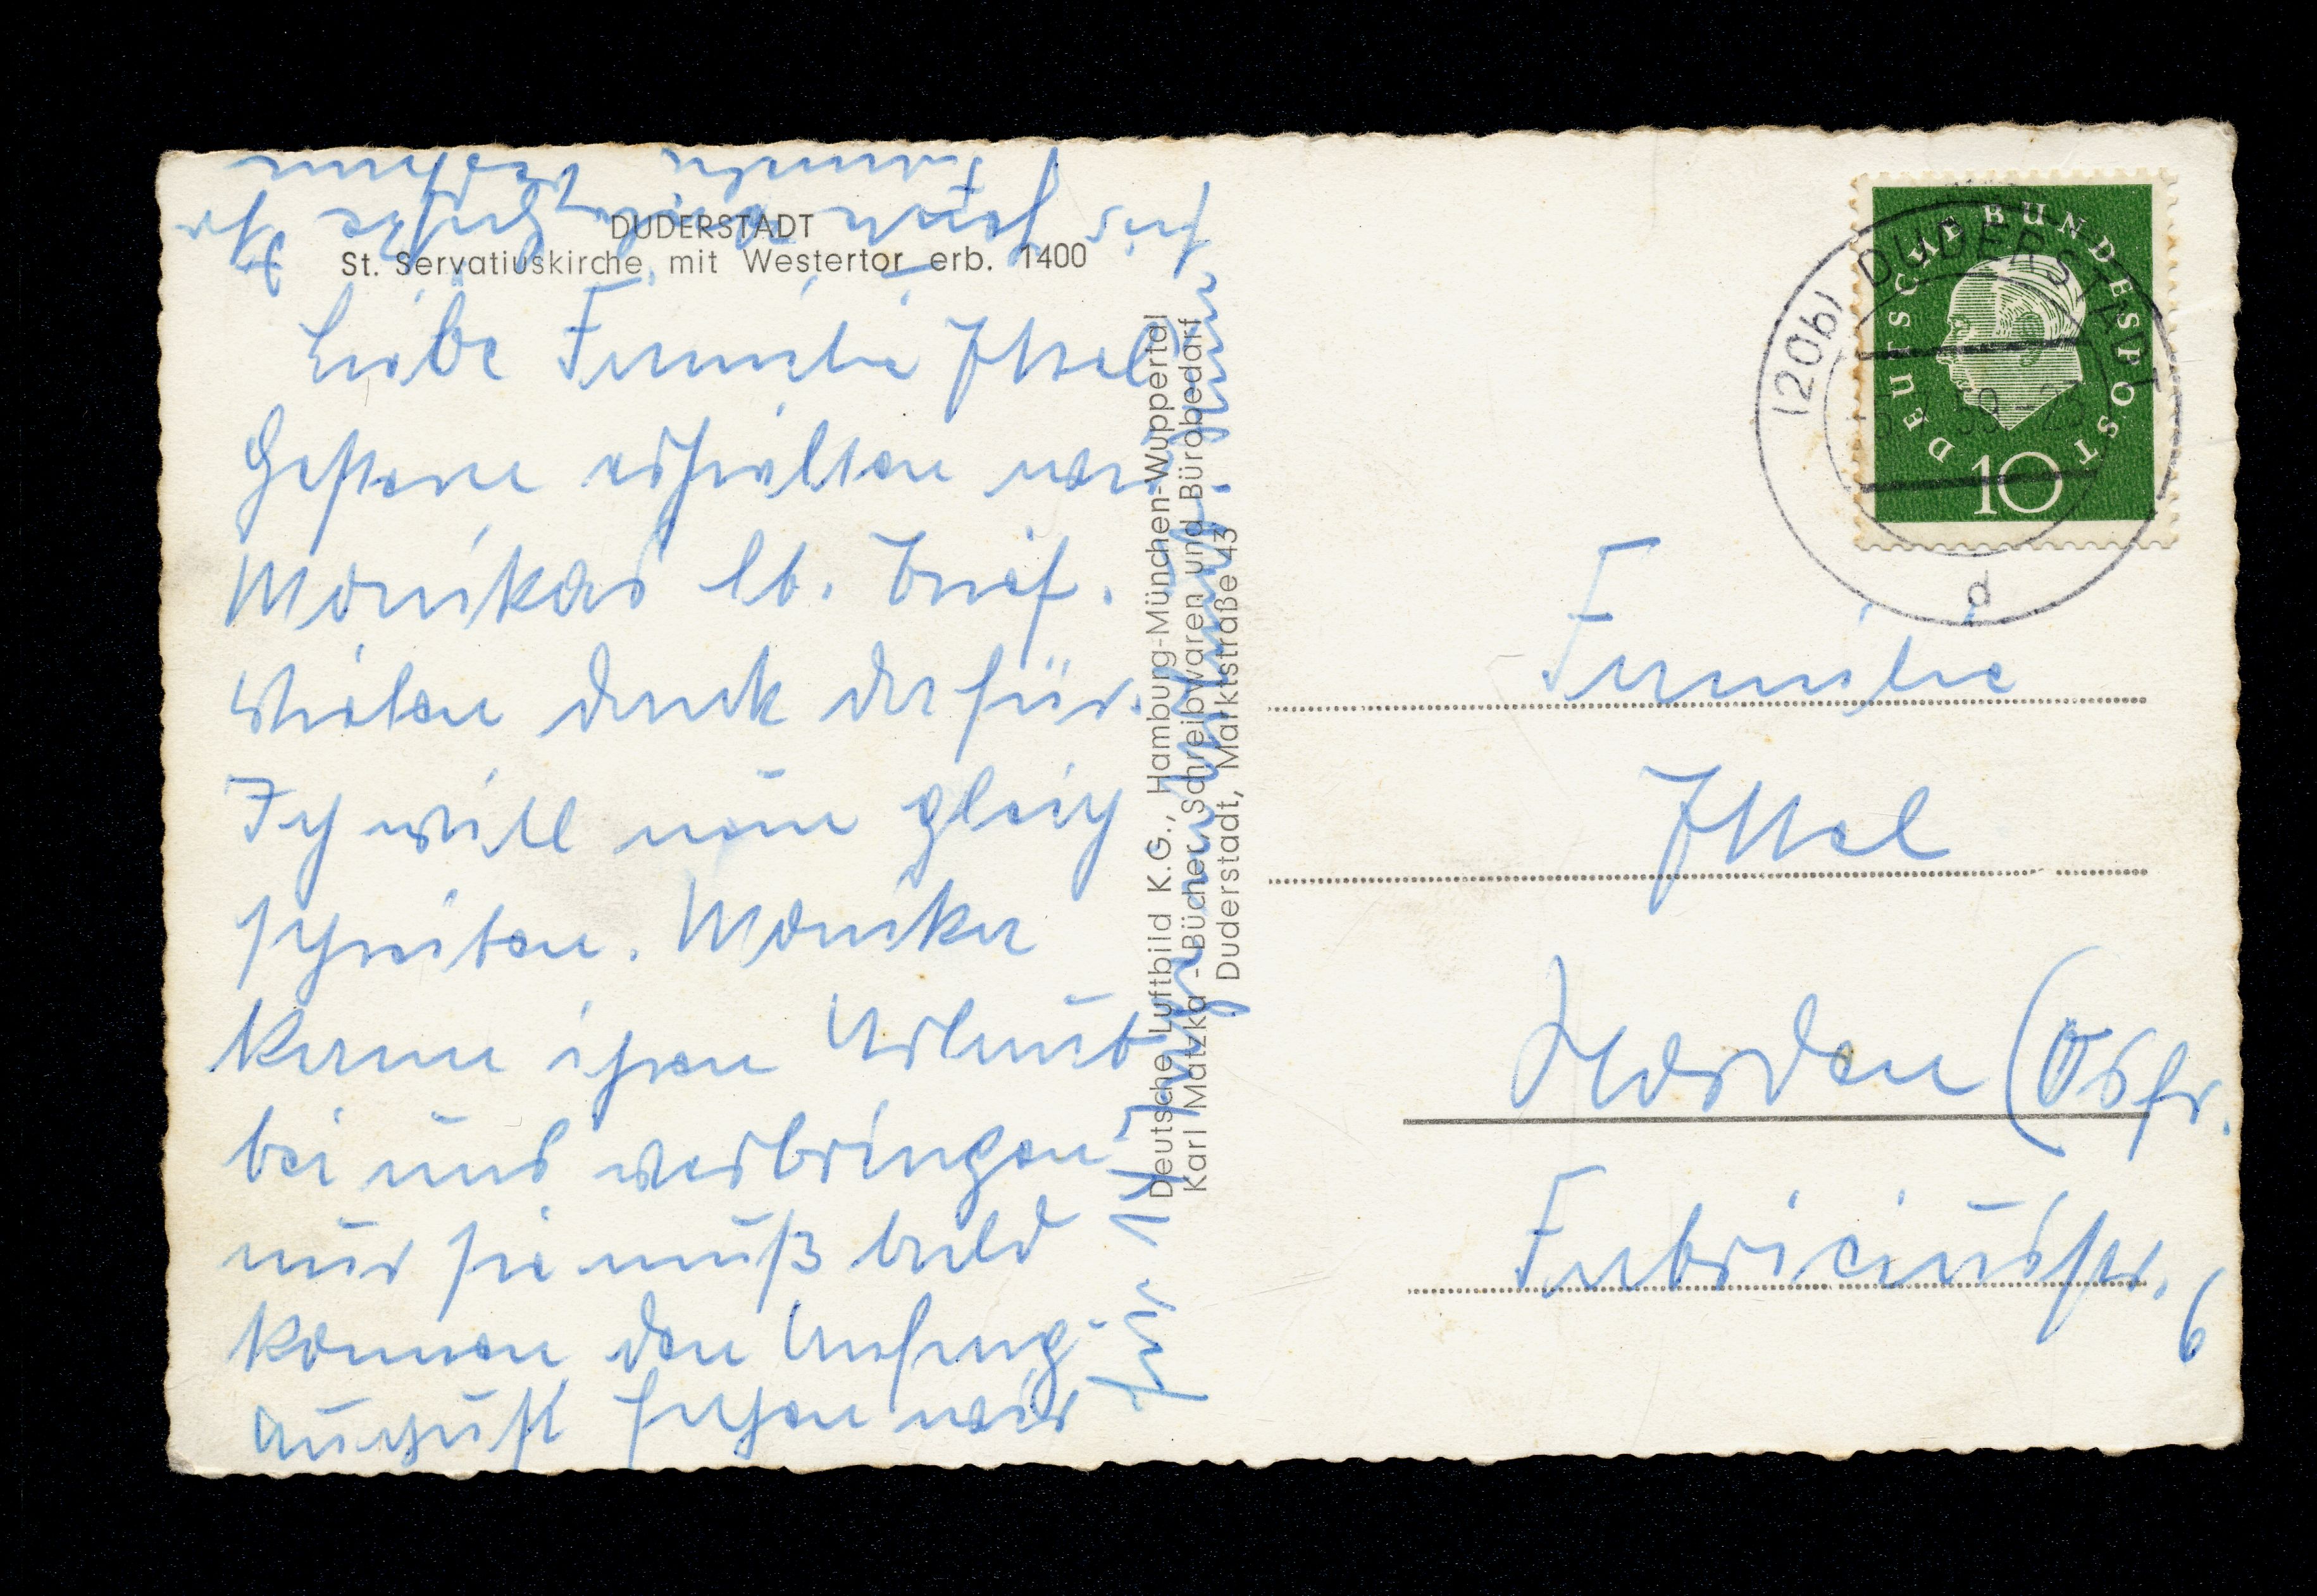 DUDERSTADT
St. Servatiuskirche mit Westertor erb. 1400
Liebe Familie Ittel
Gestern erhielten wir
Monikas lb. Brief.
Vielen Dank dafür.
Ich will nun gleich
schreiben. Monika
kann ihren Urlaub
bei uns verbringen
nur sie muß bald
kommen den Anfang
August fahren wir
für
Grüße Ihr
Familie
Deutsche Luftbild K.G., Hamburg-München-Wuppertal
Karl Matzka - Bücher, Schreibwaren und Bürobedarf
Duderstadt, Marktstraße 43
DEUTSCHE BUNDESPOST
10
(20b) DUDERSTADT
59-23
d
Familie
Ittel
Norden (Ostfr.
Fabriciusstr. 6